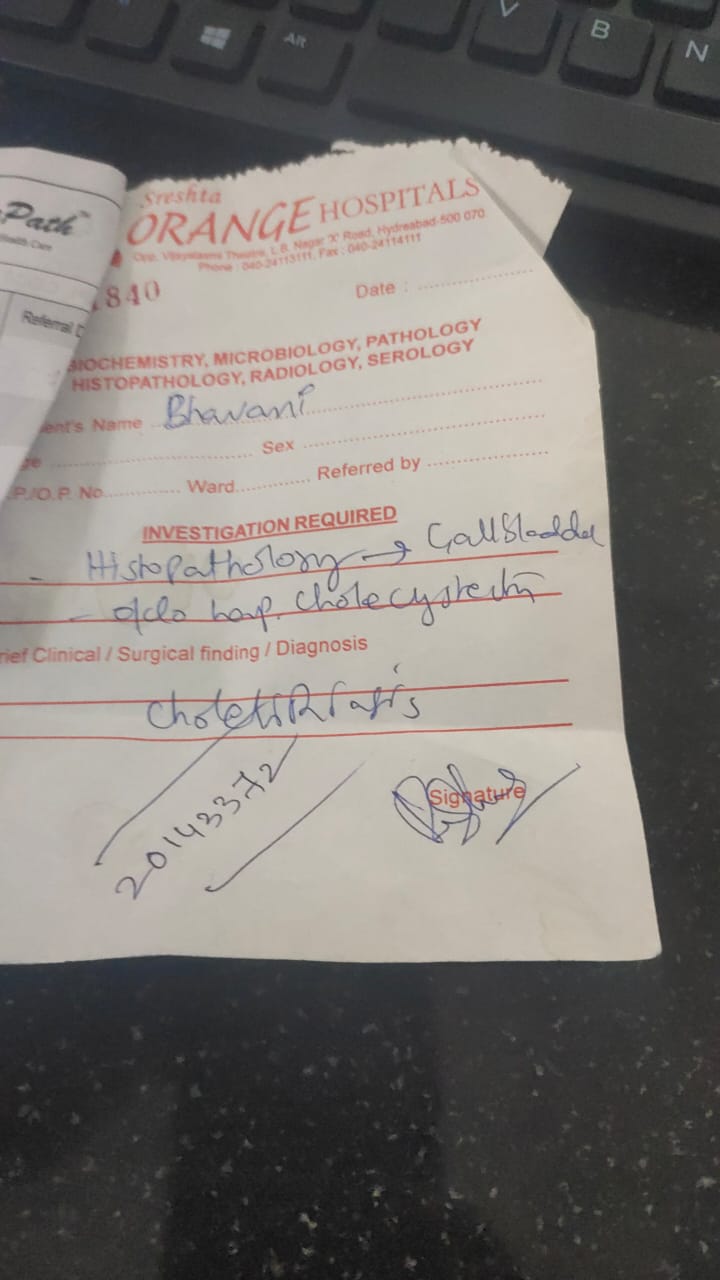 Path™
Health Care
Referral
Sreshta
ORANGE HOSPITALS
Opp. Vijayalaxmi Theatre, L.B. Nagar 'X' Road, Hydreabad-500 070.
Phone : 040-24113111, Fax : 040-24114111
840
Date :
BIOCHEMISTRY, MICROBIOLOGY, PATHOLOGY
HISTOPATHOLOGY, RADIOLOGY, SEROLOGY
ent's Name Bhavani
ge Sex
P./O.P. No. Ward Referred by
INVESTIGATION REQUIRED
- Histopathology → Gallbladder
- Cholecystectomy
rief Clinical / Surgical finding / Diagnosis
Cholelithiasis
20143372
Signature
V
B
N
Alt